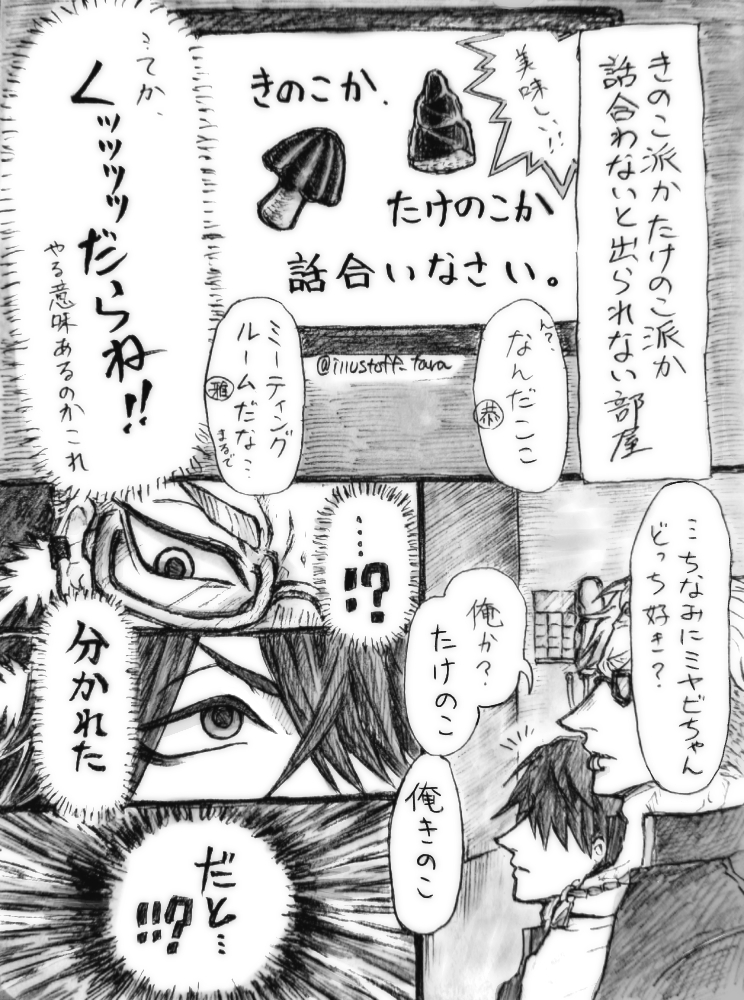 きのこ派かたけのこ派か
話合わないと出られない部屋
美味しい!!
きのこか、
たけのこか
話合いなさい。
ん?、
なんだここ
恭
ミーティング
ルームだな…
まるで
雅
@illustoff_tara
…てか、
くッッッッだらね!!
やる意味あるのかこれ
…ちなみにミヤビちゃん
どっち好き?
俺か?
たけのこ
俺きのこ
……
!?
分かれた
だと…
!!?